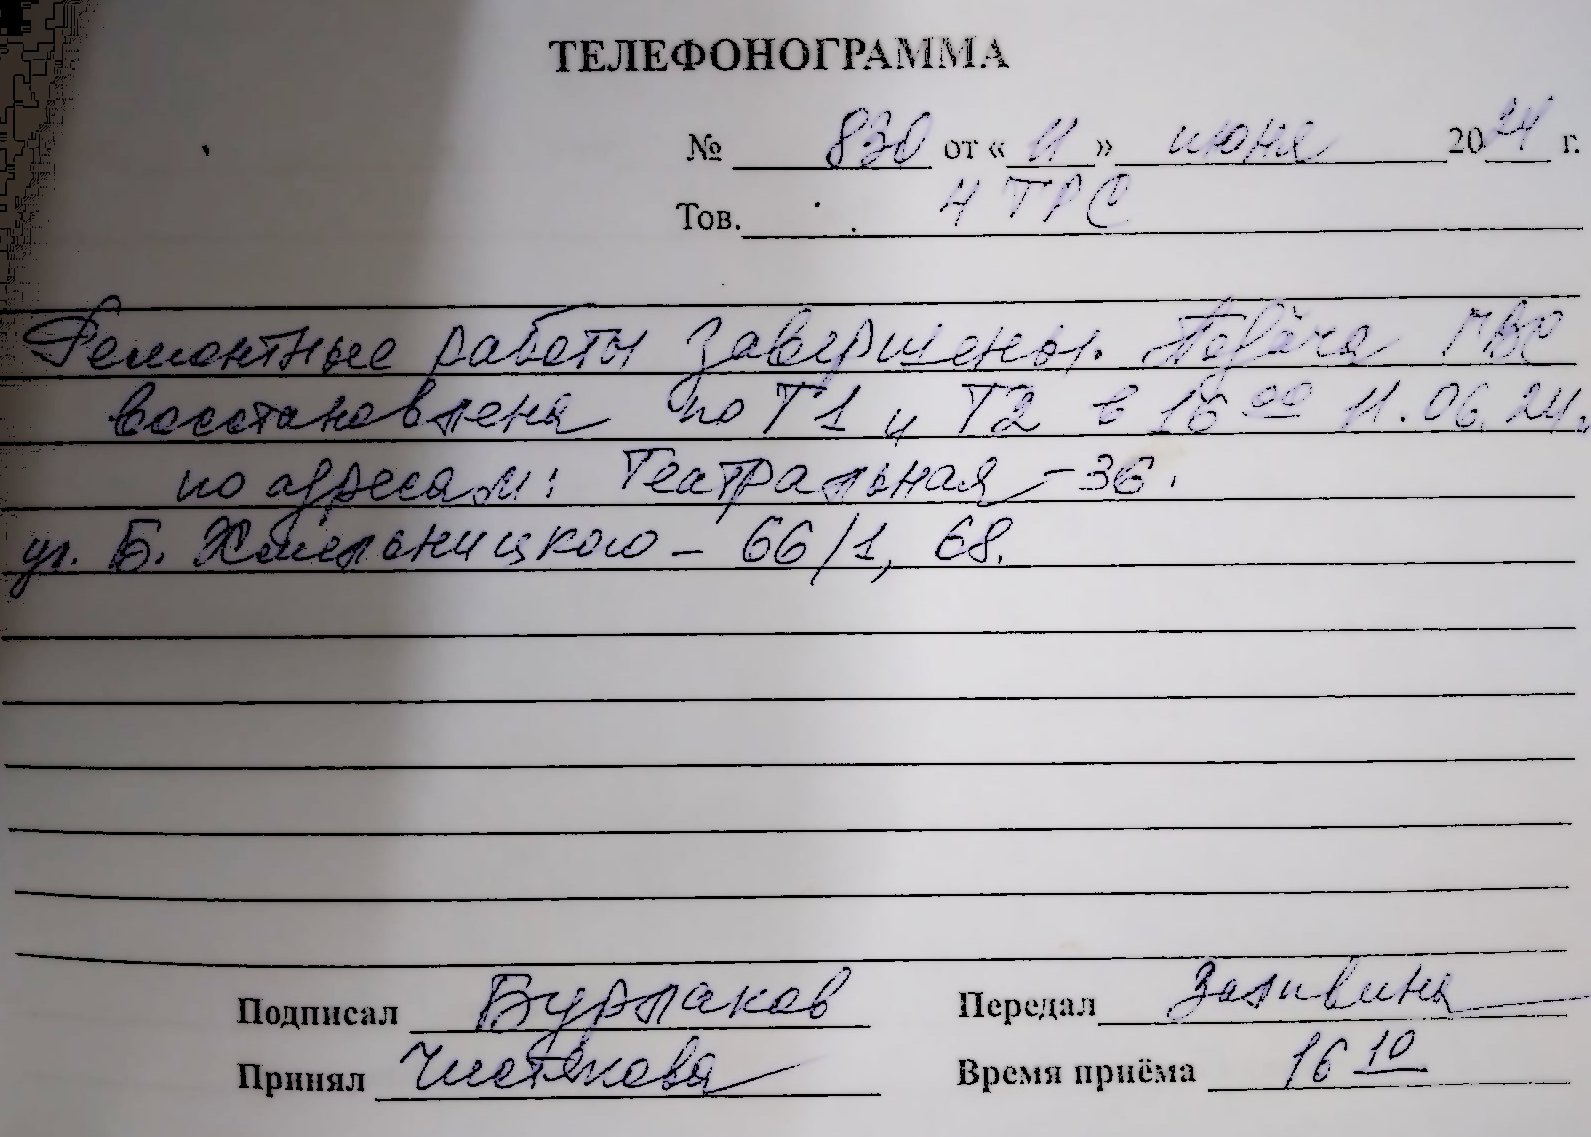 ТЕЛЕФОНОГРАММА
№ 830 от « 11 » июня 2024 г.
Тов. 4 ТРС
Ремонтные работы завершены. Подача ГВС
восстановлена по Т1 и Т2 в 16 00 11.06.24.
по адресам: Театральная - 36.
ул. Б. Хмельницкого - 66/1, 68.
Подписал Бурлаков Передал Заливина
Принял Чистякова Время приёма 16 10